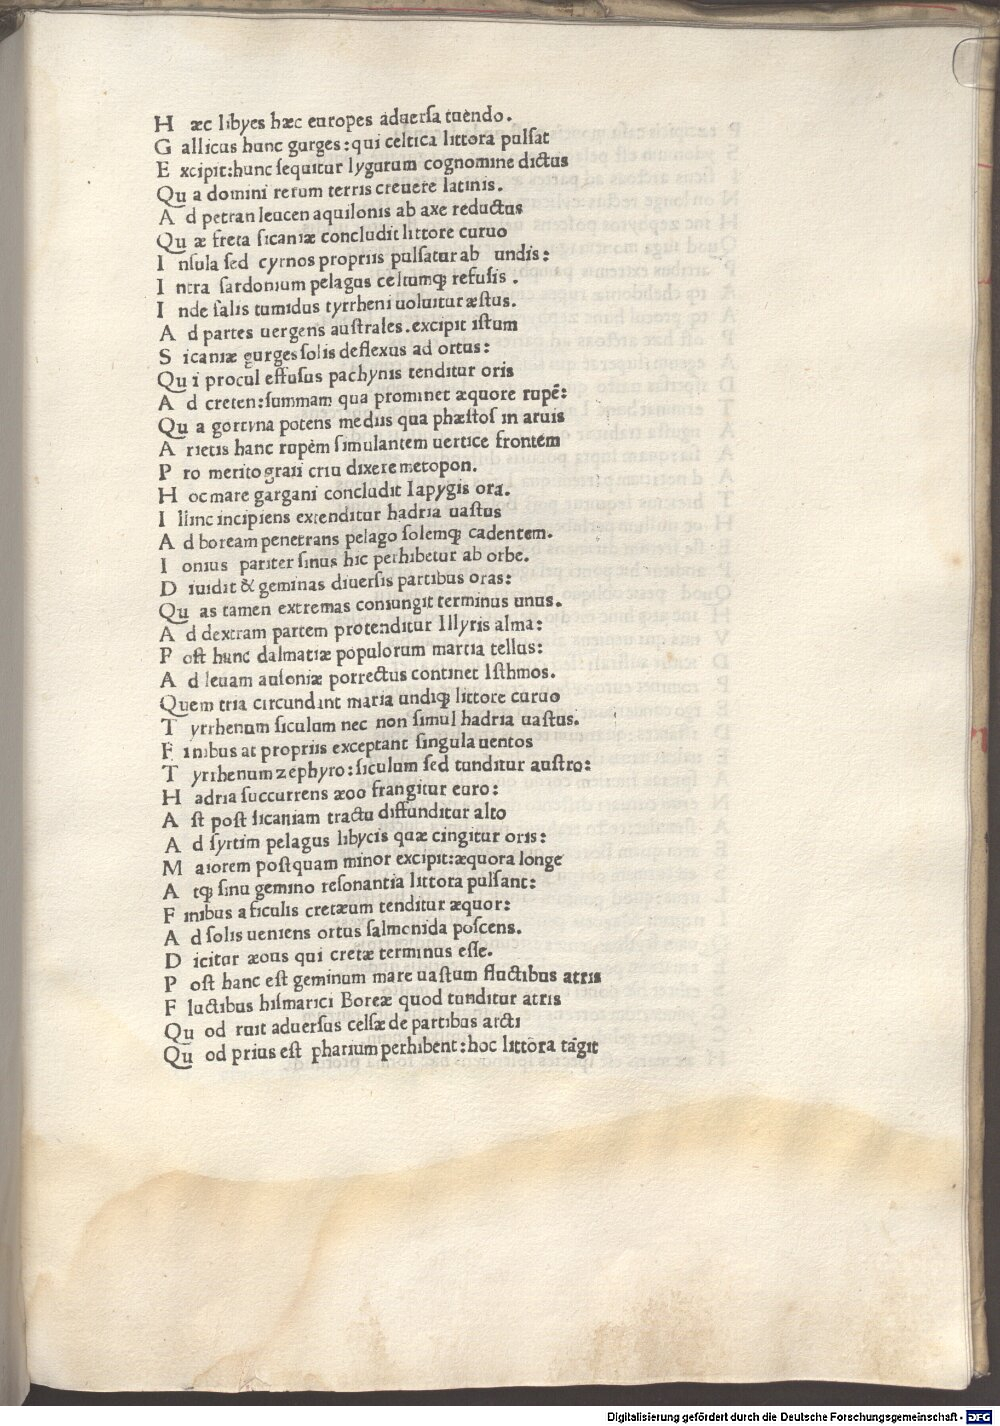 H æc libyes hæc europes aduersa tuendo.
G allicus hunc gurges: qui celtica littora pulsat
E xcipit: hunc sequitur lygurum cognomine dictus
Qu a domini rerum terris creuere latinis.
A d petran leucen aquilonis ab axe reductus
Qu æ freta sicaniæ concludit littore curuo
I nsula sed cyrnos propriis pulsatur ab undis:
I ntra sardonium pelagus celtumq; refusis.
I nde salis tumidus tyrrheni uoluitur æstus.
A d partes uergens australes. excipit istum
S icaniæ gurges solis deflexus ad ortus:
Qu i procul effusus pachynis tenditur oris
A d creten: summam qua prominet æquore rupē:
Qu a gortyna potens mediis qua phæstos in aruis
A rietis hanc rupem simulantem uertice frontem
P ro merito graii criu dixere metopon.
H oc mare gargani concludit Iapygis ora.
I llinc incipiens extenditur hadria uastus
A d boream penetrans pelago solemq; cadentem.
I onius pariter sinus hic perhibetur ab orbe.
D iuidit & geminas diuersis partibus oras:
Qu as tamen extremas coniungit terminus unus.
A d dextram partem protenditur Illyris alma:
P ost hunc dalmatiæ populorum martia tellus:
A d leuam ausoniæ porrectus continet Isthmos.
Quem tria circundant maria undiq; littore curuo
T yrrhenum siculum nec non simul hadria uastus.
F inibus at propriis exceptant singula uentos
T yrrhenum zephyro: siculum sed tunditur austro:
H adria succurrens æoo frangitur euro:
A st post sicaniam tractu diffunditur alto
A d syrtim pelagus libycis quæ cingitur oris:
M aiorem postquam minor excipit: æquora longe
A tq; sinu gemino resonantia littora pulsant:
F inibus a siculis cretæum tenditur æquor:
A d solis ueniens ortus salmonida poscens.
D icitur æous qui cretæ terminus esse.
P ost hanc est geminum mare uastum fluctibus atris
F luctibus hismarici Boreæ quod tunditur atris
Qu od ruit aduersus celsæ de partibus arcti
Qu od prius est pharium perhibent: hoc littora tāgit
Digitalisierung gefördert durch die Deutsche Forschungsgemeinschaft - DFG